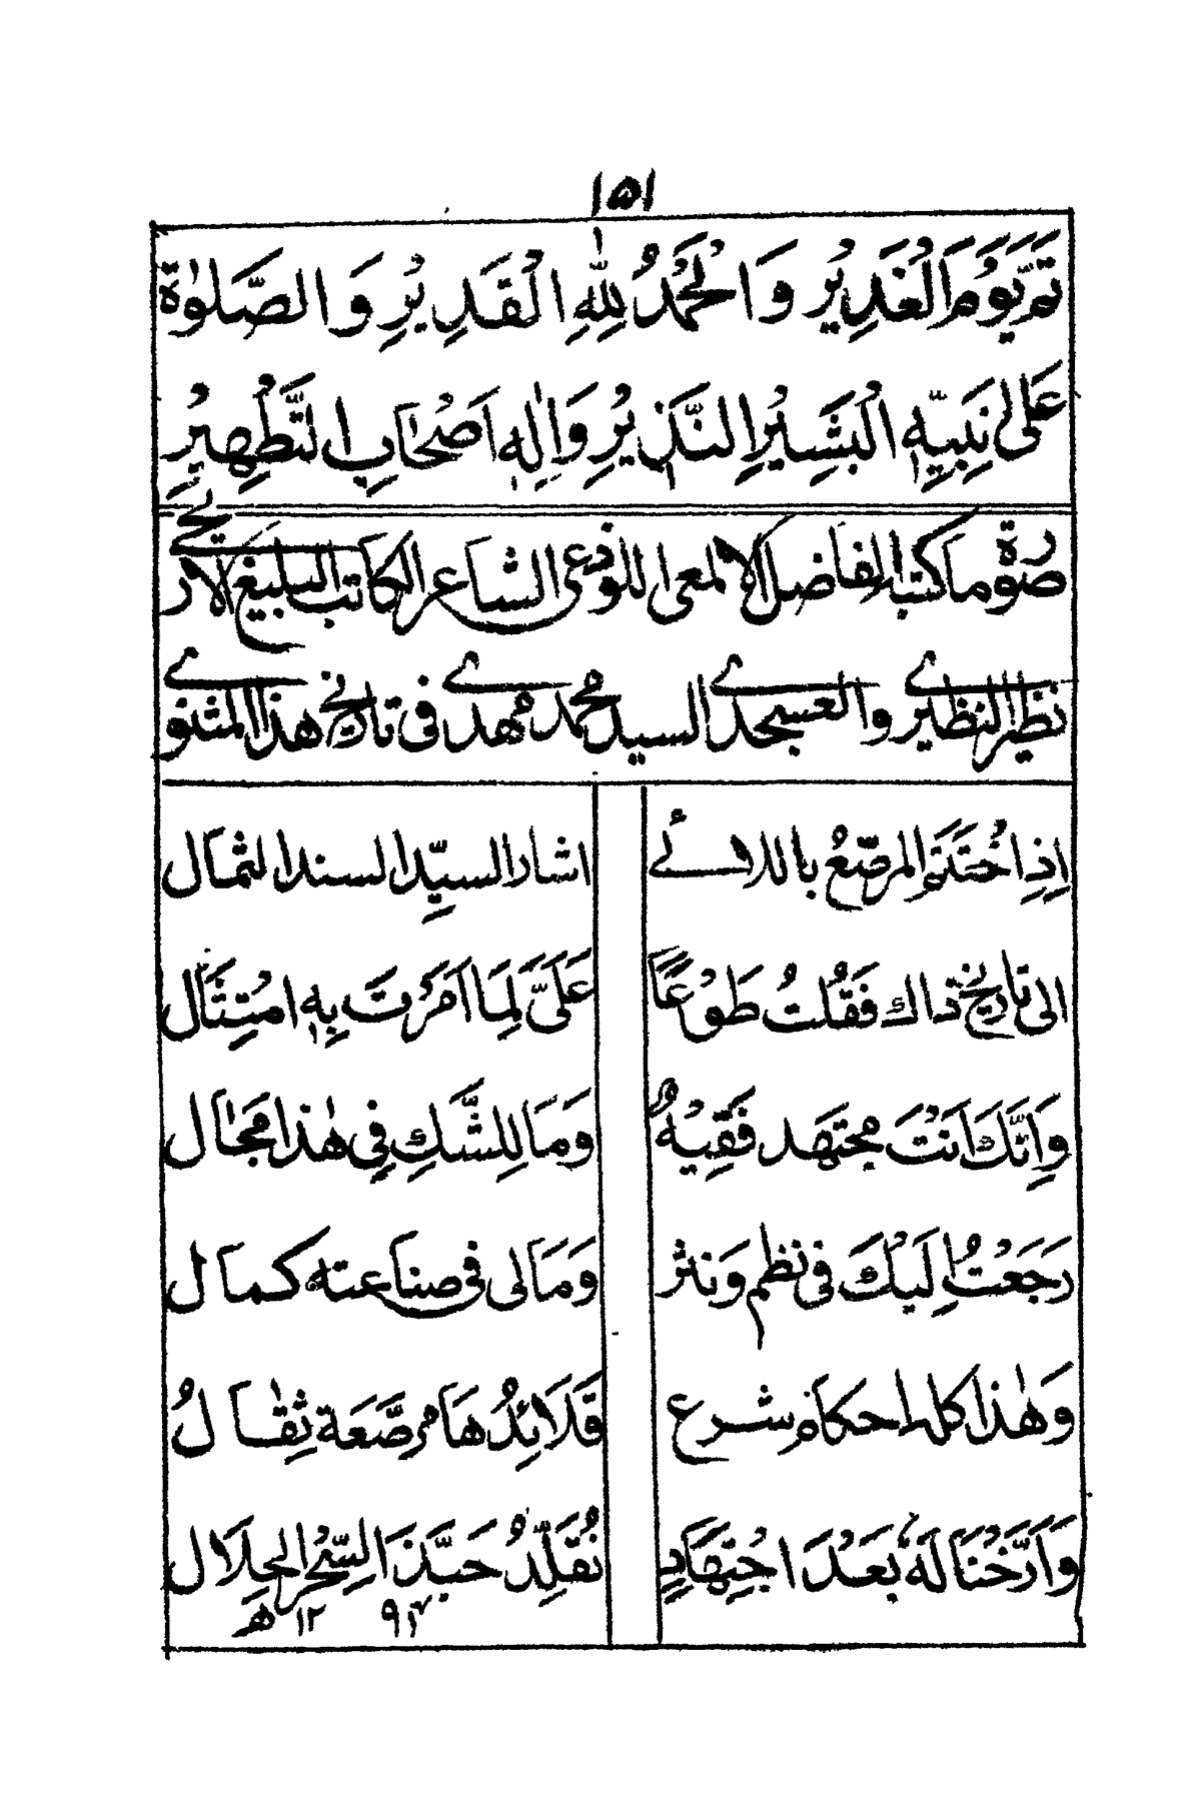 ١٥١
تَمَّ يَوْمَ الْغَدِيْرِ وَالْحَمْدُ لِلّٰهِ الْقَدِيْرِ وَالصَّلٰوةُ
عَلٰى نَبِيِّهِ الْبَشِيْرِ النَّذِيْرِ وَاٰلِهٖ اَصْحَابِ التَّطْهِيْرِ
صورة ما كتب الفاضل الالمعى اللوذعى الشاعر الكاتب البليغ الاريحى
نظير النظيرى والعسجدى السيد محمد مهدى فى تاريخ هذا المثنوى
اِذِ اخْتَتَمَ المرصّعُ باللالئے
اشار السيِّد السند الثمال
الى تاريخ ذاك فَقُلْتُ طَوْعًا
عَلَىَّ لِمَا اَمَرْتَ بِهٖ امْتِثَال
وَاِنَّكَ اَنْتَ مجتهد فَقِيْهٌ
وَمَا لِلشَّكِ فِى هٰذَا مَجَال
رَجَعْتُ اِلَيْكَ فى نظم وَنثر
وَمَا لى فى صناعته كمال
وَهٰذا كلها احكام شرع
قَلَائِدُهَا مرصَّعَة ثِقَالُ
وَاَرَّخْنَا لَهٗ بَعْدَ اجْتِهَادٍ
نُقَلِّدُ حَبَّذَا السِّحْرَ الْحَلَال
١٢ ھ